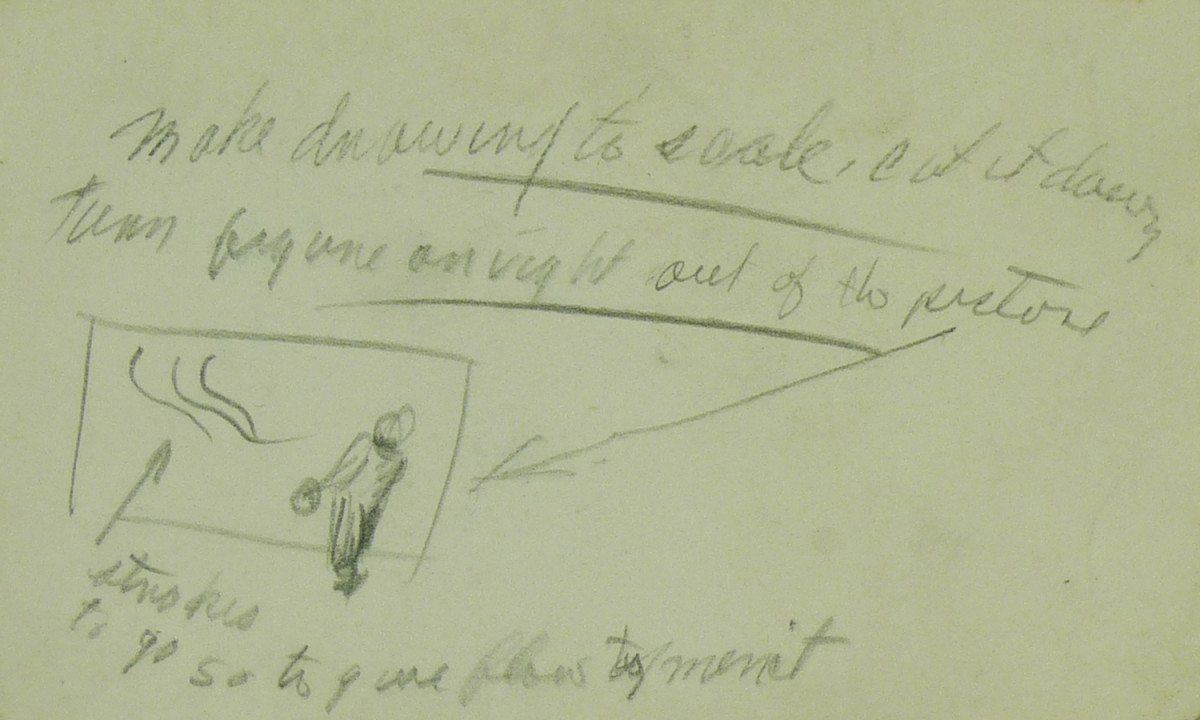 make drawing to scale, cut it down
turn figure on right out of the picture
strokes
to go
so to give flow to